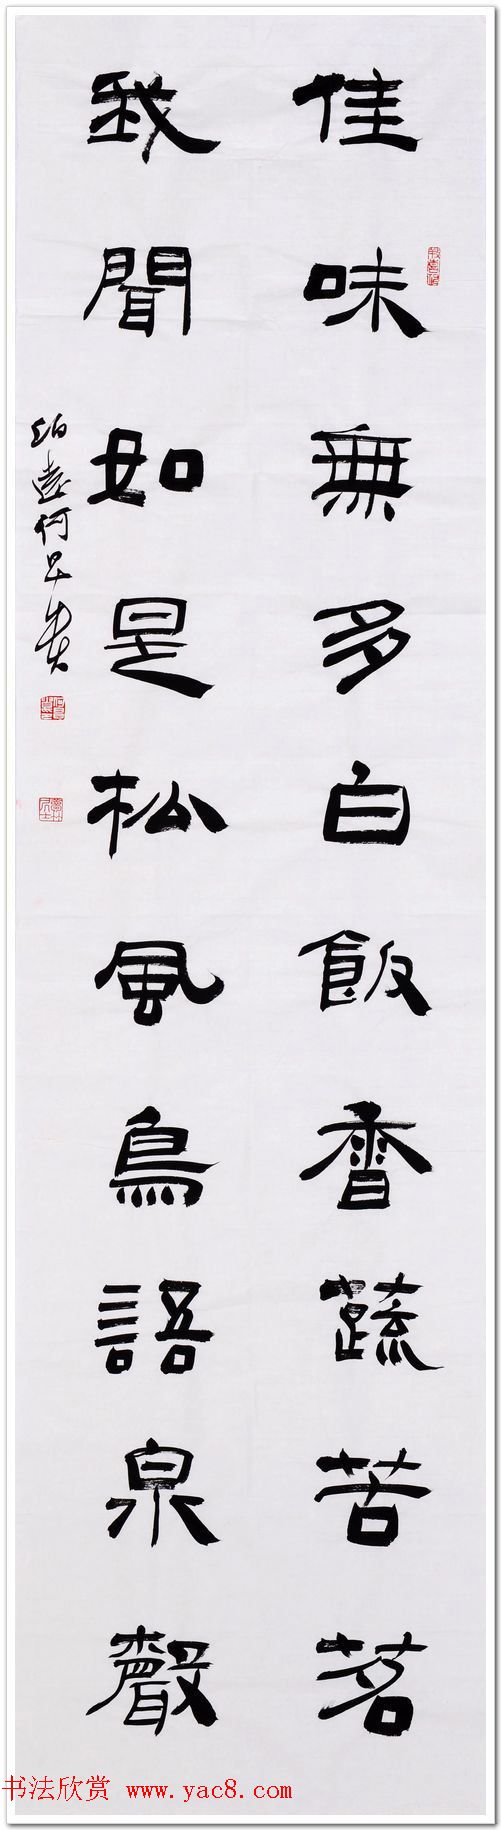 佳味無多白飯香蔬苦茗
我聞如是松風鳥語泉聲
书法欣赏 www.yac8.com